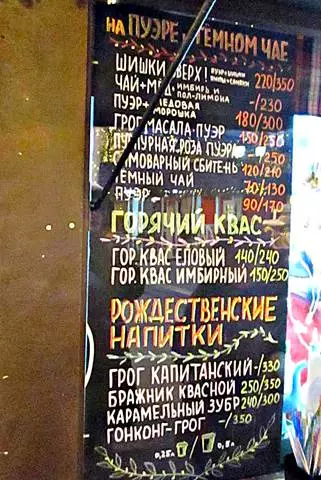 НА ПУЭРЕ И ТЕМНОМ ЧАЕ
ШИШКИ ВВЕРХ! 220/350
ЧАЙ+МЕД+ИМБИРЬ И ПОЛ-ЛИМОНА -/230
ПУЭР+ МЕДОВАЯ МОРОШКА 180/300
ГРОГ МАСАЛА ПУЭР 150/250
ПУРПУРНАЯ РОЗА ПУЭРА -/250
САМОВАРНЫЙ СБИТЕНЬ 120/210
ТЕМНЫЙ ЧАЙ 70/130
ПУЭР 90/170
ГОРЯЧИЙ КВАС
ГОР. КВАС ЕЛОВЫЙ 140/240
ГОР. КВАС ИМБИРНЫЙ 150/250
РОЖДЕСТВЕНСКИЕ
НАПИТКИ
ГРОГ КАПИТАНСКИЙ -/330
БРАЖНИК КВАСНОЙ 250/350
КАРАМЕЛЬНЫЙ ЗУБР 240/300
ГОНКОНГ-ГРОГ -/350
0,25л / 0,5л